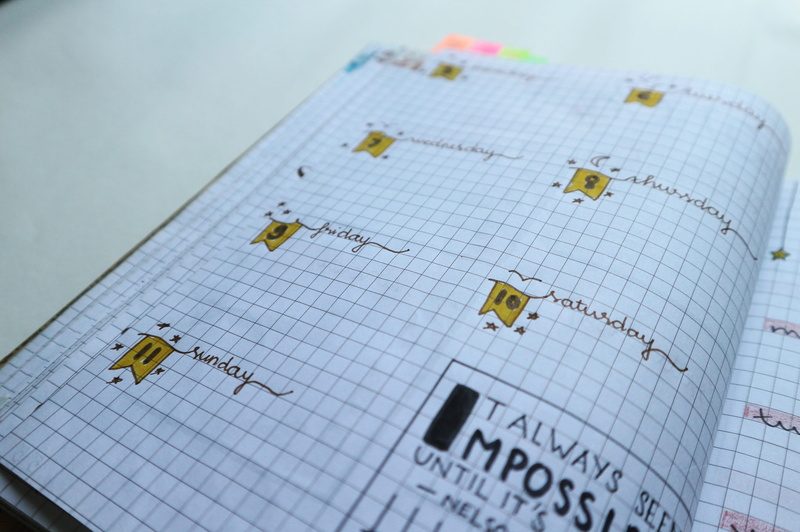 5 monday
6 tuesday
7 wednesday
8 thursday
9 friday
10 saturday
11 sunday
IT ALWAYS SEE
IMPOSSI
UNTIL IT'S
—NELSO